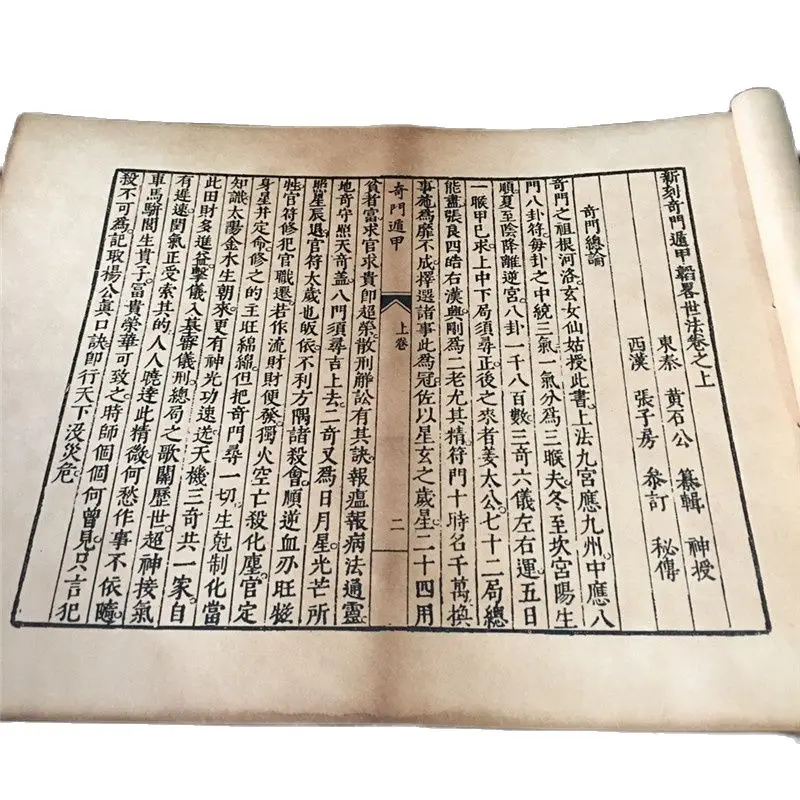 新刻奇門遁甲韜畧世法卷之上
東秦 黃石公 纂輯 神授
西漢 張子房 叅訂 秘傳
奇門總論
奇門之祖根河洛。玄女仙姑授此書。上法九宮應九州。中應八
門八卦符每卦之中統三氣一氣分為三𠋫。夫冬至坎宮陽生
順夏至陰降離逆宮八卦一千八百數三奇六儀左右運五日
一𠋫甲己求。上中下局須尋正後之來者姜太公七十二局總
能盡張良四皓右漢興剛為二老尤其精。符門十時名千萬換
事施為靡不成。擇選諸事此為冠。佐以星玄之歲星。二十四用
奇門遁甲 上卷 二
貧者富求官求貴即超榮散刑辭訟有其訣。報瘟報病法通靈
地奇守照天奇盖。八門須尋吉上去二奇又為日月星光芒所
照星辰退。官符太歲也皈依。不利方隅諸殺會順逆血刃旺𢆶
牲官符修犯官職還。若作流財財便發。獨火空亡殺化塵官定
身星并定命。修之的主班綿綿。但把奇門尋一切。生尅制化當
知識太陽金水生朝來。更有神光功速迸天機三奇共一家。自
此田財多進益擊儀入墓審儀刑總局之歌關歷世。超神接氣
有遲速。閏氣正受索其的人人曉達此精微何愁作事不依隨。
車馬駢闐生貴子。富貴榮華可致之時師個個何曾見只言犯
殺不可為。記取楊公真口訣即行天下沒災危。